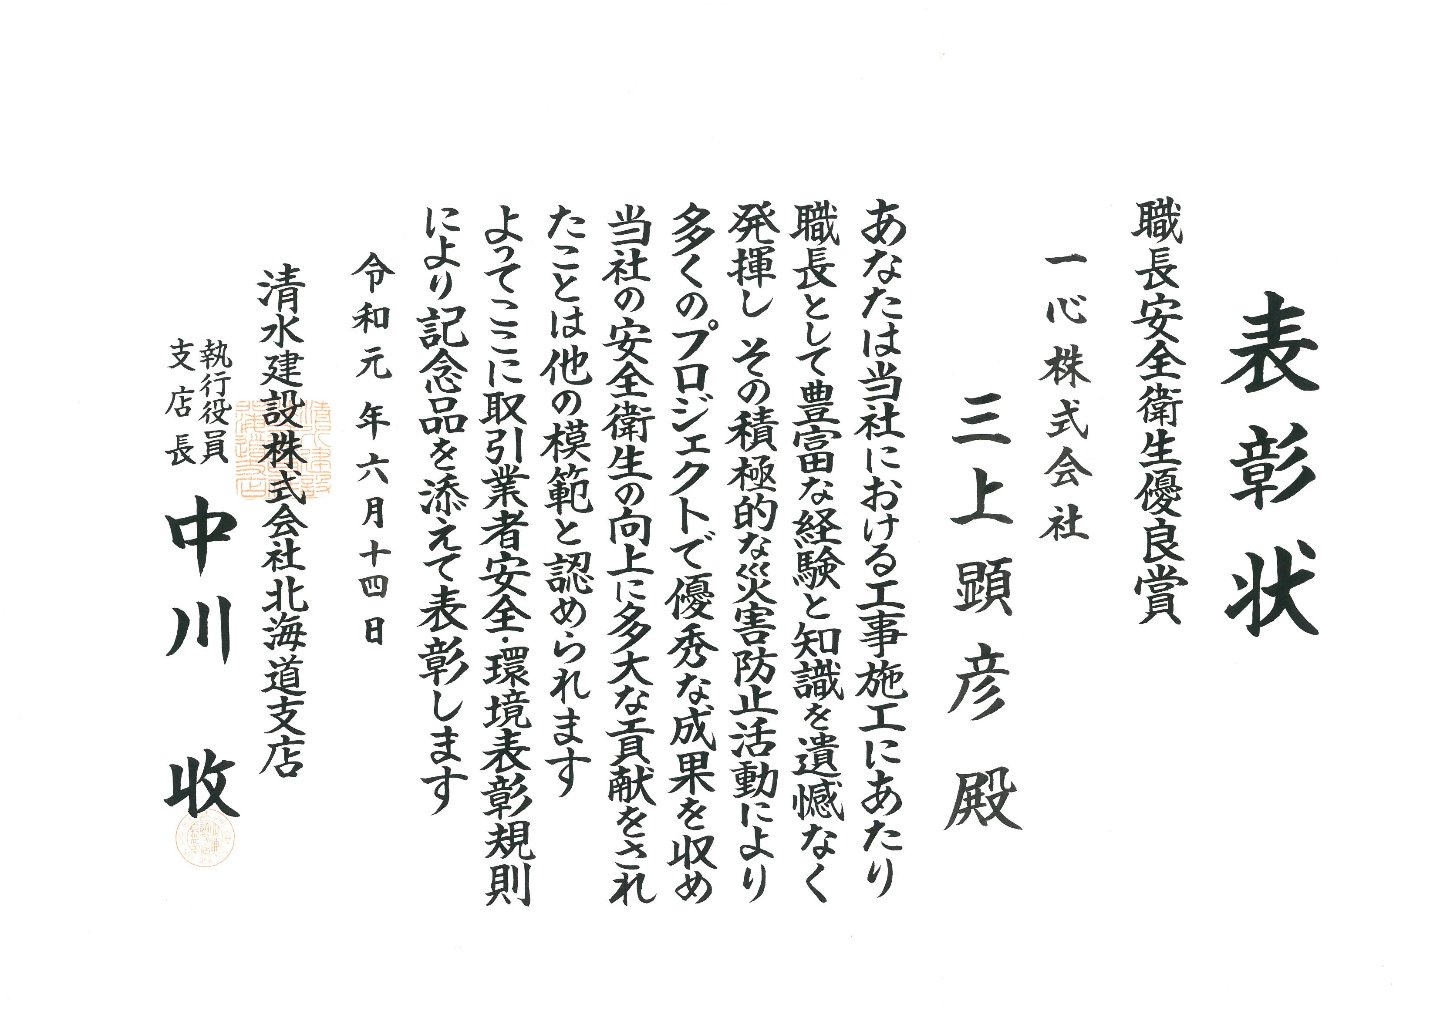 表彰状
職長安全衛生優良賞
一心株式会社
三上顕彦殿
あなたは当社における工事施工にあたり
職長として豊富な経験と知識を遺憾なく
発揮し その積極的な災害防止活動により
多くのプロジェクトで優秀な成果を収め
当社の安全衛生の向上に多大な貢献をされ
たことは他の模範と認められます
よってここに取引業者安全・環境表彰規則
により記念品を添えて表彰します
令和元年六月十四日
清水建設株式会社北海道支店
執行役員
支店長
中川 收